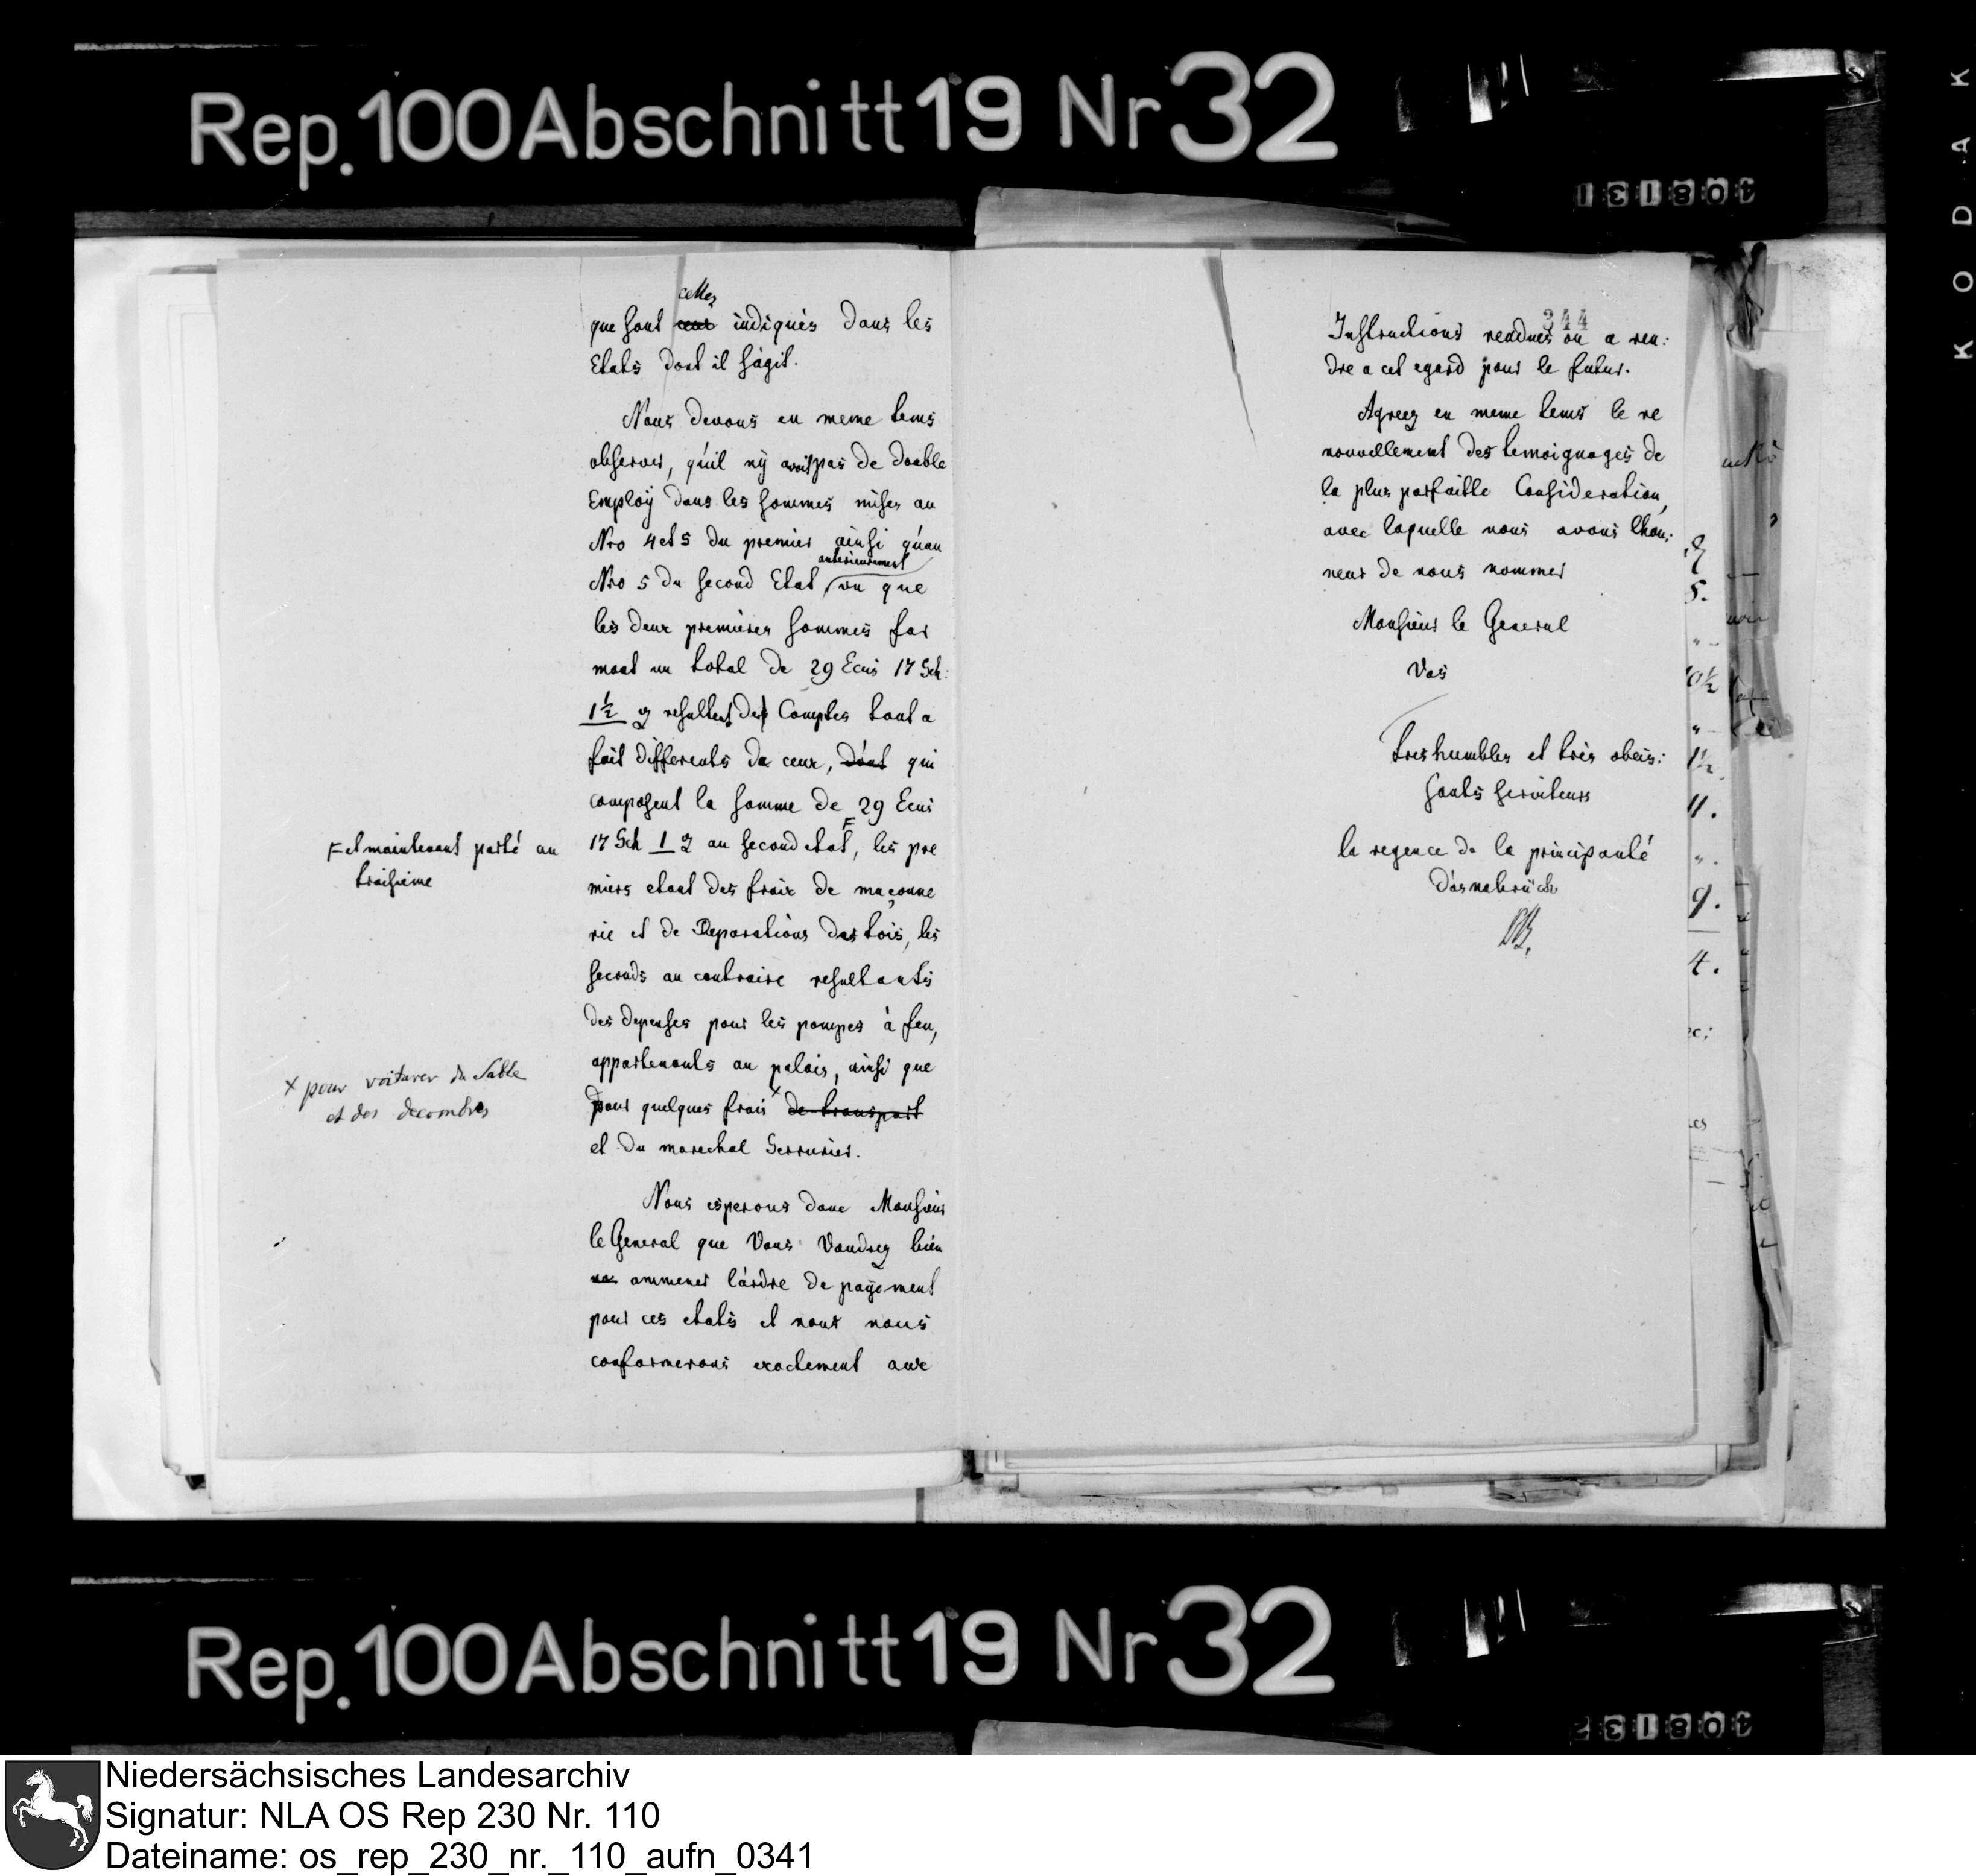 Rep. 100 Abschnitt 19 Nr 32
131804
KODAK
celles
que sont ceux indiqués dans les
Etats dont il s'agit.
Nous devons en meme tems
observer, qu'il nÿ avoit pas de double
Emploÿ dans les sommes mises au
Nro 4 et 5 du premier ainsi qu'au
anterieurement
Nro 5 du second Etat vu que
les deux premières sommes for
mant un total de 29 Ecus 17 Sch:
1½ ₰ resultent des Comptes tout a
fait differents de ceux, dont qui
composent la somme de 29 Ecus
F
17 Sch 1 ₰ au second etat, les pre
F et maintenant porté au
troisieme
miers etant des fraix de maçonne
rie et de Reparations des tois, les
seconds au contraire resultants
des depenses pour les pompes à feu,
appartenants au palais, ainsi que
pour quelques frais x de transport
x pour voiturer du Sable
et des decombres
et du marechal Serrurier.
Nous esperons donc Monsieur
le General que Vous Voudrez bien
ammener l'ordre de payement
pour ces etats et nous nous
conformerons exactement aux
344
Instructions rendues ou a ren:
dre a cet egard pour le futur.
Agreez en meme tems le re
nouvellement des temoignages de
la plus parfaitte Consideration,
avec laquelle nous avons l'hon:
neur de nous nommer
Monsieur le General
Vos
tres humbles et très obeis:
sants serviteurs
la regence de la principauté
d'osnabrück
5.
10½
1½
11.
9.
4.
Rep. 100 Abschnitt 19 Nr 32
131804
Niedersächsisches Landesarchiv
Signatur: NLA OS Rep 230 Nr. 110
Dateiname: os_rep_230_nr._110_aufn_0341